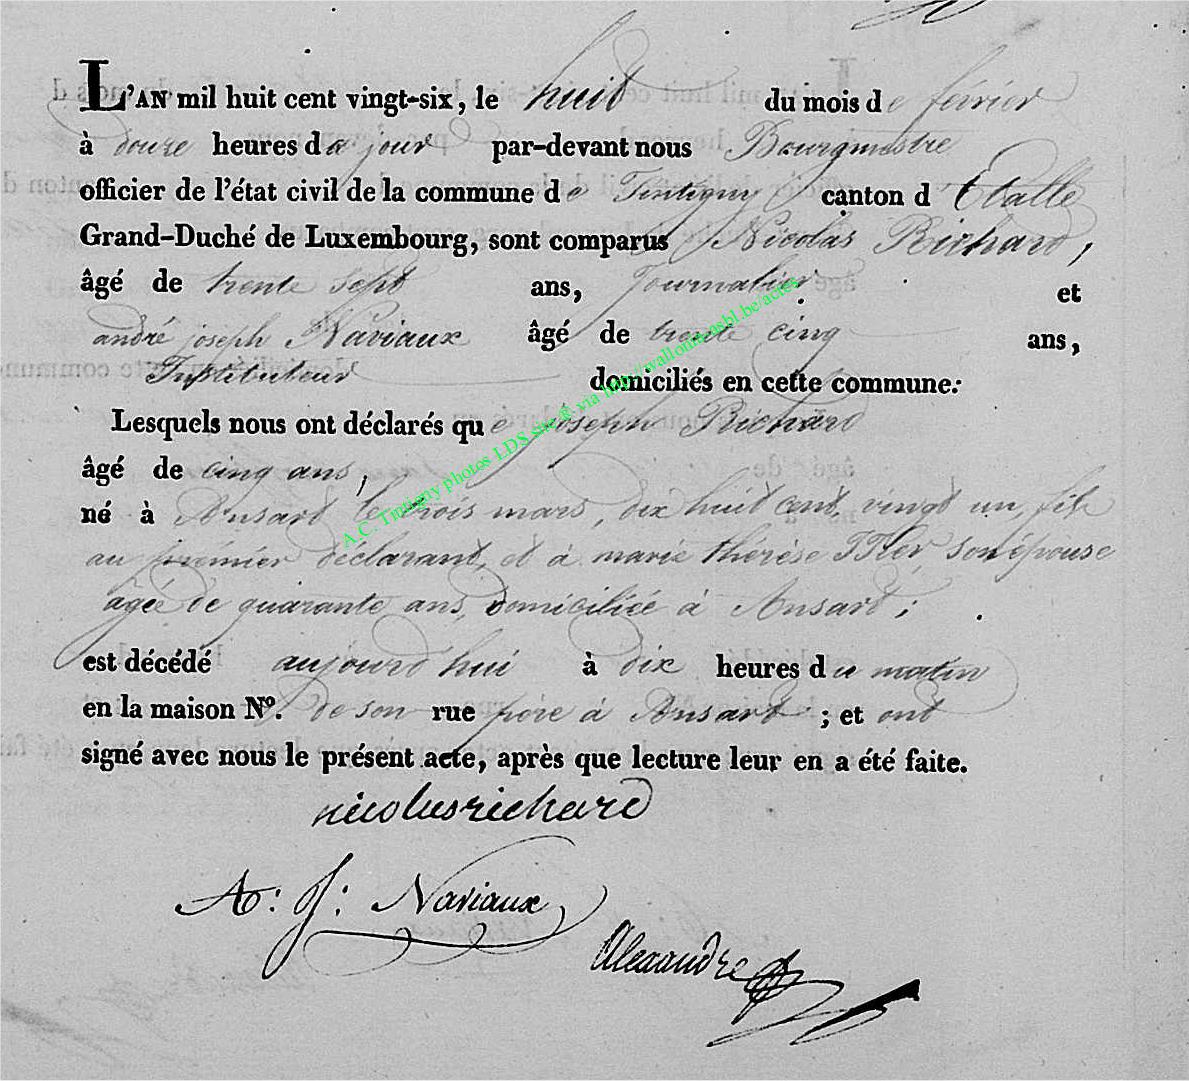 L'AN mil huit cent vingt-six, le huit du mois de février
à douze heures du jour par-devant nous Bourgmestre
officier de l'état civil de la commune de Tintigny canton d'Etalle
Grand-Duché de Luxembourg, sont comparus Nicolas Richard,
âgé de trente sept ans, Journalier et
andré joseph Naviaux âgé de trente cinq ans,
Instituteur domiciliés en cette commune:
Lesquels nous ont déclarés que joseph Richard
âgé de cinq ans,
né à Ansart le trois mars, dix huit cent vingt un, fils
au premier déclarant, et à marie thérèse son épouse
agée de quarante ans, domiciliée à Ansart;
est décédé aujourd'hui à dix heures du matin
en la maison Nº. de son rue père à Ansart ; et ont
signé avec nous le présent acte, après que lecture leur en a été faite.
nicolas richard
A: J: Naviaux
Alexandre
A.C. Tintigny photos LDS site & via http://wallonia-asbl.be/actes